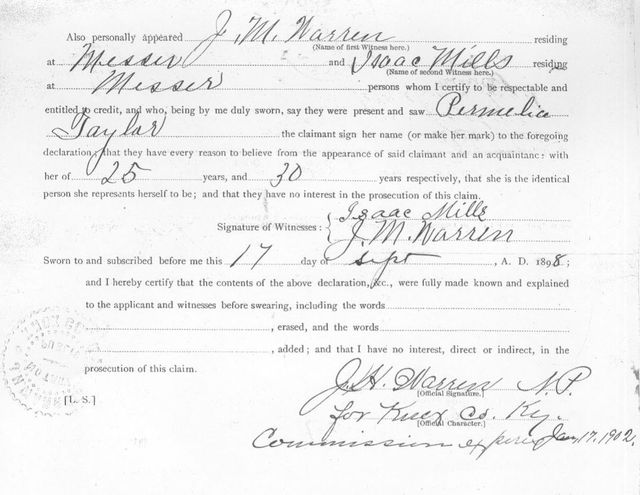 Also personally appeared J. M. Warren residing
(Name of first Witness here.)
at Messer and Isaac Mills residing
(Name of second Witness here.)
at Messer persons whom I certify to be respectable and
entitled to credit, and who, being by me duly sworn, say they were present and saw Permelia
Taylor the claimant sign her name (or make her mark) to the foregoing
declaration; that they have every reason to believe from the appearance of said claimant and an acquaintance with
her of 25 years, and 30 years respectively, that she is the identical
person she represents herself to be; and that they have no interest in the prosecution of this claim.
Isaac Mills
Signature of Witnesses: J. M. Warren
Sworn to and subscribed before me this 17 day of Sept, A. D. 1898;
and I hereby certify that the contents of the above declaration, &c., were fully made known and explained
to the applicant and witnesses before swearing, including the words
, erased, and the words
, added; and that I have no interest, direct or indirect, in the
prosecution of this claim.
J. H. Warren N. P.
[Official Signature.]
[L. S.] for Knox Co. Ky.
[Official Character.]
Commission expires Jan 17. 1902.